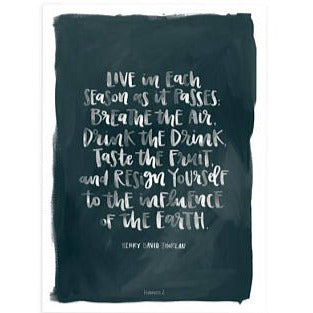 LIVE in EACH
SEASON as it PASSES;
BREATHE the AIR,
DRINK the DRINK,
TASTE the FRUIT,
and RESIGN YOURSELF
to the inFLUENCE
OF the EARTH.
HENRY DAVID THOREAU